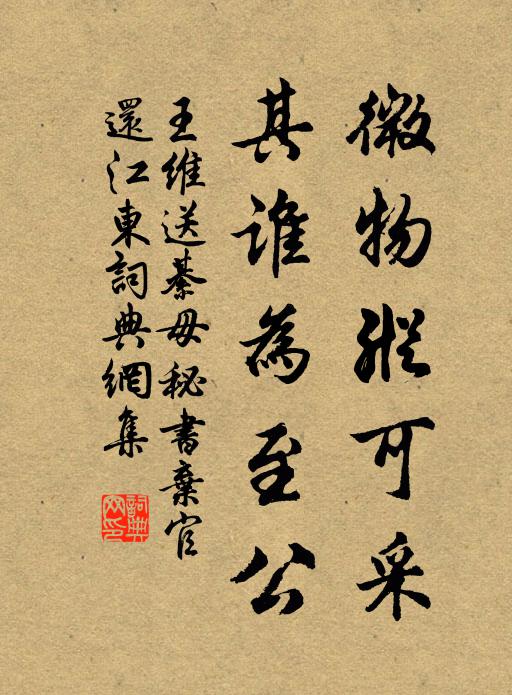 微物縱可采
其誰為至公
王維送綦毋秘書棄官
還江東詞典網集
詞典
网印